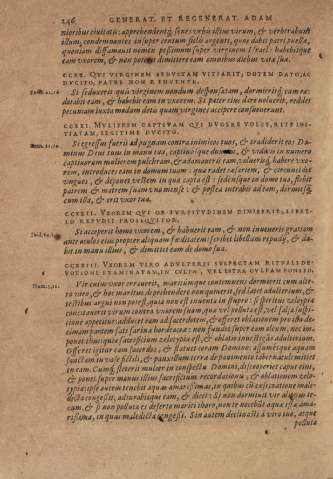 246 GENERAT. ET REGENERAT. ADAM
nioribus ciuitatis: apprehendentq́; senes vrbis illius virum, & verberabunt
illum, condemnantes insuper centum siclis argenti, quos dabit patri puellæ,
quoniam diffamauit nomen pessimum super virginem Israel: habebitque
eam vxorem, & non poterit dimittere eam omnibus diebus vitæ suæ.
CCXX. QVI VIRGINEM SEDVCTAM VITIARIT, DOTEM DATO, AC
DVCITO, PATRE NON RENVENTE.
Si seduxerit quis virginem nondum desponsatam, dormieritq́; cum ea:
dotabit eam, & habebit eam in vxorem. Si pater eius dare noluerit, reddet
pecuniam iuxta modum dotis quam virgines accipere consueuerunt.
CCXXI. MVLIEREM CAPTIVAM QVI DVCERE VOLET, RITE INI-
TIATAM, LEGITIME DVCITO.
Si egressus fueris ad pugnam contra inimicos tuos, & tradiderit eos Do-
minus Deus tuus in manu tua, captiuósque duxeris, & videris in numero
captiuorum mulierem pulchram, & adamaueris eam, voluerisq́; habere vxo-
rem, introduces eam in domum tuam: quæ radet cæsariem, & circuncidet
vngues, & deponet vestem in qua capta est: sedensque in domo tua, flebit
patrem & matrem suam vno mense: & postea intrabis ad eam, dormiesq́;
cum illa, & erit vxor tua.
CCXXII. VXOREM QVI OB TVRPITVDINEM DIMISERIT, LIBEL-
LO REPVDII PROSEQVITOR.
Si acceperit homo vxorem, & habuerit eam, & non inuenerit gratiam
ante oculos eius propter aliquam fœditatem: scribet libellum repudij, & da-
bit in manu illius, & dimittet eam de domo sua.
CCXXIII. VXOREM VIRO ADVLTERII SVSPECTAM RITVALI DE-
VOTIONE EXAMINATAM, IN CVLPA, VEL EXTRA CVLPAM PONITO.
Vir cuius vxor errauerit, maritumque contemnens dormierit cum alte-
ro viro, & hoc maritus deprehendere non quiuerit, sed latet adulterium, &
testibus argui non potest, quia non est inuenta in stupro: si spiritus zelotypiæ
concitauerit virum contra vxorem suam, quæ vel polluta est, vel falsa suspi-
cione appetitur: adducet eam ad sacerdotem, & offeret oblationem pro illa de-
cimam partem sati farinæ hordeaceæ: non fundet super eam oleum, nec im-
ponet thus: quia sacrificium zelotypiæ est, & oblatio inuestigans adulterium.
Offeret igitur eam sacerdos, & statuet coram Domino: assumetque aquam
sanctam in vase fictili, & pauxillum terræ de pauimento tabernaculi mittet
in eam. Cumq́; steterit mulier in conspectu Domini, discooperiet caput eius,
& ponet super manus illius sacrificium recordationis, & oblationem zelo-
typiæ: ipse autem tenebit aquas amarissimas, in quibus cū execratione male-
dicta congessit, adiurabitque eam, & dicet: Si non dormiuit vir alienus te-
cum, & si non polluta es deserto mariti thoro, non te nocebūt aquæ istæ ama-
rissimæ, in quas maledicta congessi. Sin autem declinasti à viro tuo, atque
polluta